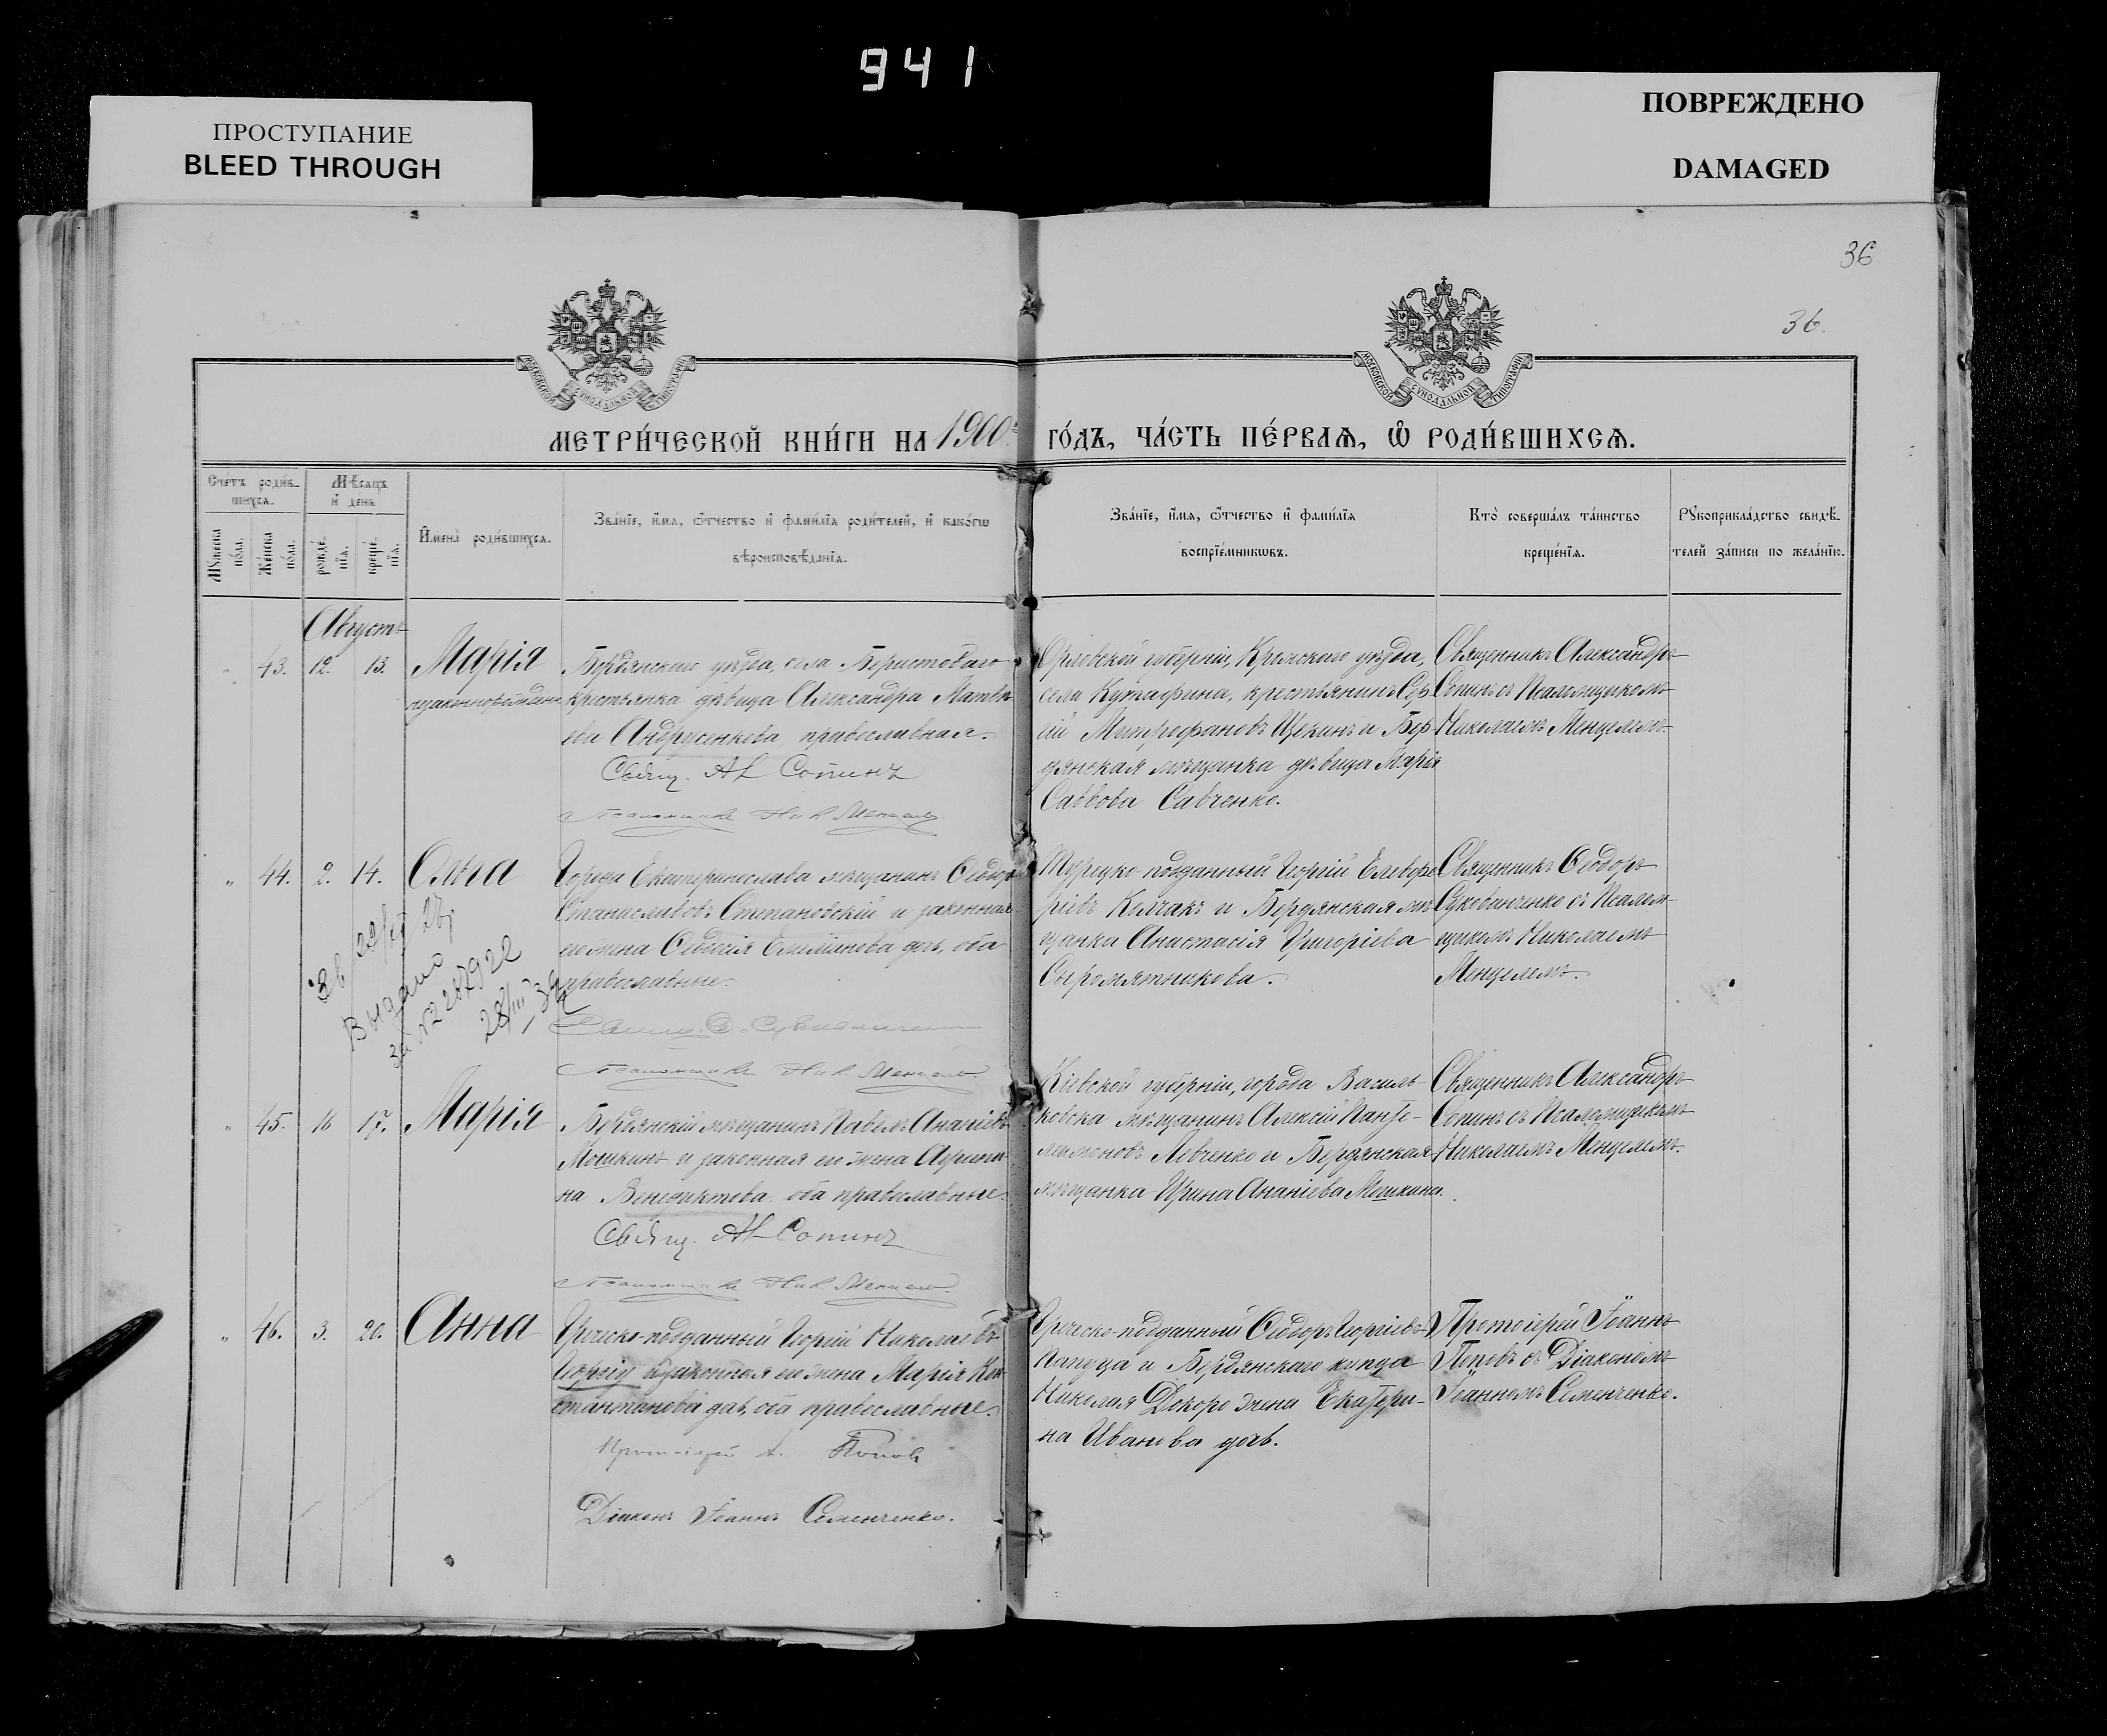 941
ПРОСТУПАНИЕ
BLEED THROUGH
ПОВРЕЖДЕНО
DAMAGED
36
36.
МОСКОВСКОЙ СУНОДАЛЬНОЙ ТИПОГРАФІИ
МОСКОВСКОЙ СУНОДАЛЬНОЙ ТИПОГРАФІИ
МЕТРИ́ЧЕСКОЙ КНИ́ГИ НА 1900й ГО́ДЪ, ЧА́СТЬ ПЕ́РВАѦ, Ѡ҆ РОДИ́ВШИХСѦ.
Сче́тъ роди́в-
шихсѧ.
Мꙋ́жеска по́ла.
Же́нска по́ла.
Мѣ́сѧцъ
и҆ де́нь
рожде́-нїѧ.
креще́-нїѧ.
И҆мена̀ роди́вшихсѧ.
Зва́нїе, и҆́мѧ, ѻ҆́тчество и҆ фами́лїѧ роди́телей, и҆ како́гѡ
вѣроисповѣ́данїѧ.
Зва́нїе, и҆́мѧ, ѻ҆́тчество и҆ фами́лїѧ
воспрїе́мникѡвъ.
Кто̀ соверша́лъ та́инство
креще́нїѧ.
Рꙋкоприкла́дство свидѣ́-
телей за́писи по жела́нїю.
Августъ
43. 12. 13. Марія
незаконнорожденная
Бердянскаго уѣзда, села Берестоваго
крестьянка дѣвица Александра Матвѣ-
ева Андрусенкова, православная.
Свящ. Ал Сопинъ
Псаломщикъ Ник Менцель
Орловской губерніи, Кромскаго уѣзда,
села Кутафина, крестьянинъ Сер-
гій Митрофановъ Щекинъ и Бер-
дянская мѣщанка дѣвица Марія
Саввова Савченко.
Священникъ Александръ
Сопинъ съ Псаломщикомъ
Николаемъ Менцелемъ.
44. 2. 14. Ольга
Города Екатеринослава мѣщанинъ Ѳеодоръ
Станиславовъ Степановскій и законная
его жена Ѳеодосія Емиліянова дочь, оба
православные.
Выдано
за №2287922
28/III 39
Свящ. Ѳ. Сукованченко
Псаломщикъ Ник Менцель.
Турецко-подданный Георгій Елевфе-
ріевъ Колчакъ и Бердянская мѣ-
щанка Анастасія Григоріева
Сыромятникова.
Священникъ Ѳеодоръ
Сукованченко съ Псалом-
щикомъ Николаемъ
Менцелемъ.
45. 16 17. Марія
Бердянскій мѣщанинъ Павелъ Ананіевъ
Мошкинъ и законная его жена Агрипи-
на Венедиктова оба православные.
Свящ. Ал Сопинъ
Псаломщикъ Ник Менцель.
Кіевской губерніи, города Василь-
ковска мѣщанинъ Алексій Панте-
леимоновъ Левченко и Бердянская
мѣщанка Ирина Ананіева Мошкина.
Священникъ Александръ
Сопинъ съ Псаломщикомъ
Николаемъ Менцелемъ.
46. 3. 20. Анна
Греческо-подданный Георгій Николаевъ
Георгіу и законная его жена Марія Кон-
стантинова дочь, оба православные.
Протоіерей І. Поповъ
Діаконъ Іоаннъ Семенченко.
Греческо-подданный Ѳеодоръ Георгіевъ
Папуда и Бердянскаго купца
Николая Докоро жена Екатери-
на Иванова дочь.
Протоіерей Іоаннъ
Поповъ съ Діакономъ
Іоанномъ Семенченко.